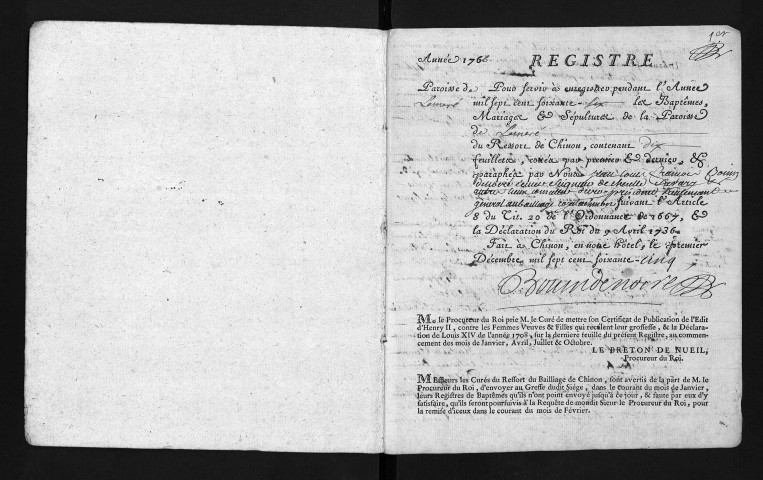 1er
Année 1766 REGISTRE
Paroisse de Pour servir à enregistrer pendant l'Année
Lemeré mil sept cent soixante-six les Baptêmes,
Mariages & Sépultures de la Paroisse
de Lemeré
du Ressort de Chinon, contenant dix
feuillets, cottés par premier & dernier, &
paraphés par Nous jean Louis
général au bailliage suivant l'Article
8 du Tit. 20 de l'Ordonnance de 1667, &
la Déclaration du Roi du 9 Avril 1736.
Fait à Chinon, en notre hôtel, le premier
Décembre mil sept cent soixante-cinq
Bouin de noiré
M. le Procureur du Roi prie M. le Curé de mettre son Certificat de Publication de l'Edit
d'Henry II, contre les Femmes Veuves & Filles qui recélent leur grossesse, & la Déclara-
tion de Louis XIV de l'année 1708, sur la derniere feuille du présent Registre, au com-
mencement des mois de Janvier, Avril, Juillet & Octobre.
LE BRETON DE NUEIL,
Procureur du Roi.
Messieurs les Curés du Ressort du Bailliage de Chinon, sont avertis de la part de M. le
Procureur du Roi, d'envoyer au Greffe dudit Siége, dans le courant du mois de Janvier,
leurs Registres de Baptêmes qu'ils n'ont point envoyé jusqu'à ce jour, & faute par eux d'y
satisfaire, qu'ils seront poursuivis à la Requête de mondit Sieur le Procureur du Roi, pour
la remise d'iceux dans le courant du mois de Février.